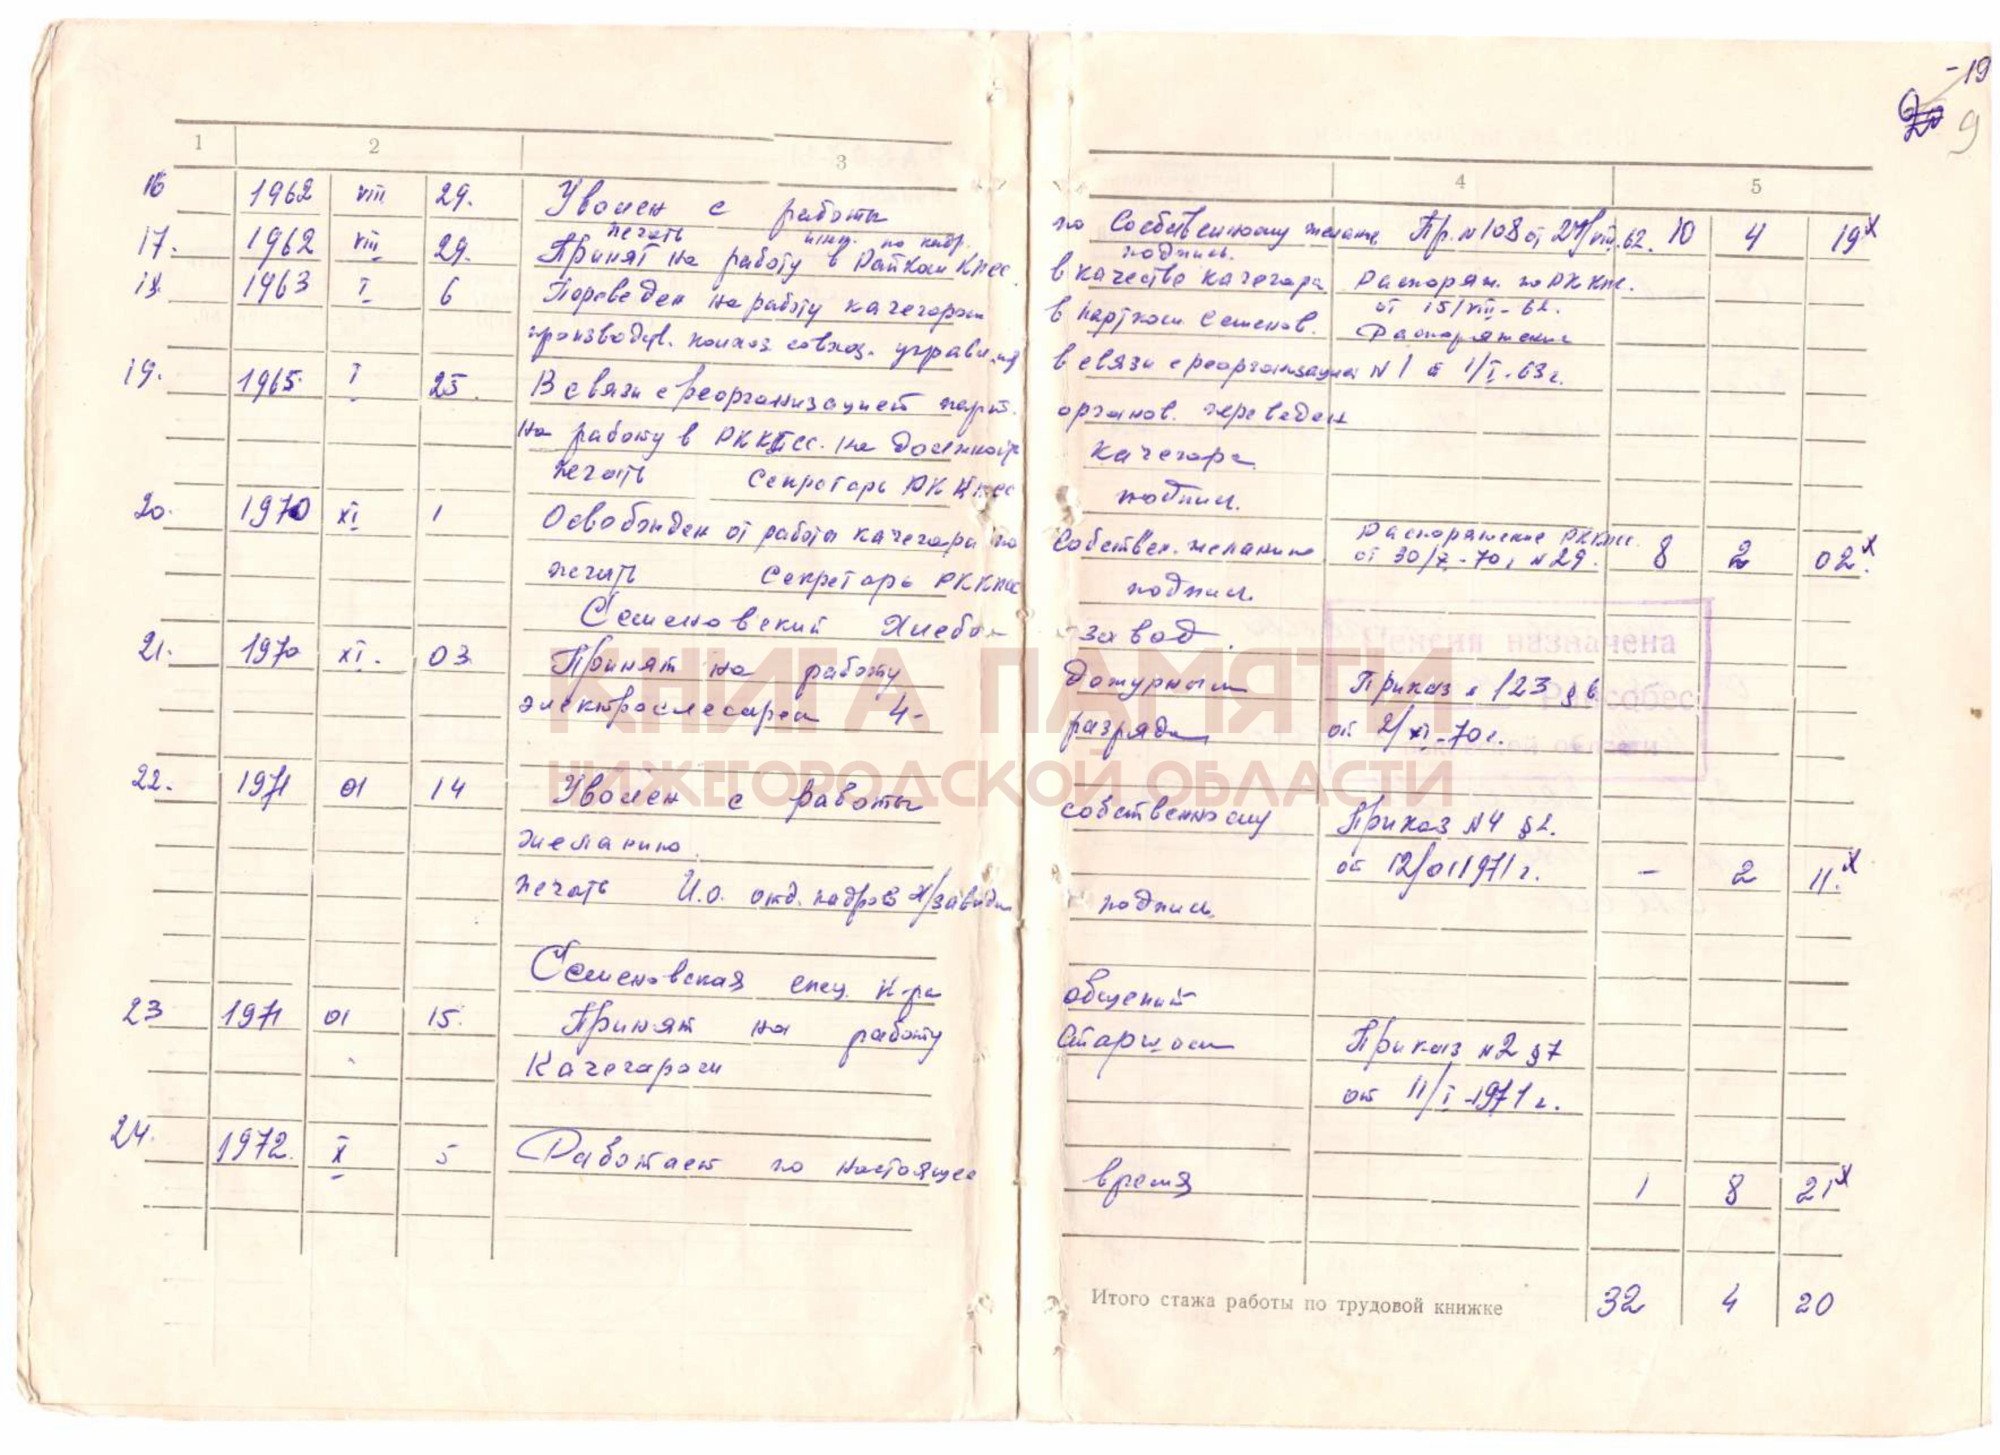 -19
9
1 2 3 4 5
16 1962 VIII 29. Уволен с работы по собственному желанию Пр. N 108 от 27/VIII.62. 10 4 19х
печать инсп. по кадр. подпись.
17. 1962 VIII 29. Принят на работу в Райком КПСС в качестве качегара Распоряж. по РК КПСС.
от 15/VIII-62.
18. 1963 I 6 Переведен на работу качегаром в партком Семенов. Распоряжение
производств. колхоз. совхоз. управления в связи с реорганизацией N 1 от 1/I-63 г.
19. 1965 I 25. В связи с реорганизацией парт. органов. переведен
на работу в РК КПСС. на должность качегара
печать Секретарь РК КПСС подпись.
20. 1970 XI 1 Освобожден от работы качегара по собствен. желанию Распоряжение РК КПСС.
от 30/X-70 г. N 29. 8 2 02.х
печать Секретарь РК КПСС подпись.
Семеновский Хлебозавод.
Пенсия назначена
21. 1970 XI. 03. Принят на работу дежурным Приказ N 123 § в
электрослесарем 4- разряда от 2/XI-70 г.
собес
области
КНИГА ПАМЯТИ
НИЖЕГОРОДСКОЙ ОБЛАСТИ
22. 1971 01 14 Уволен с работы собственному Приказ N 4 § 2.
желанию. от 12/01 1971 г. - 2 11.х
печать И.о. отд. кадров х/завода подпись.
Семеновская спец. к-ра общений
23 1971 01 15. Принят на работу старшим Приказ N 2 § 7
Качегаром от 11/I-1971 г.
24. 1972. X 5 Работает по настоящее время 1 8 21х
Итого стажа работы по трудовой книжке 32 4 20